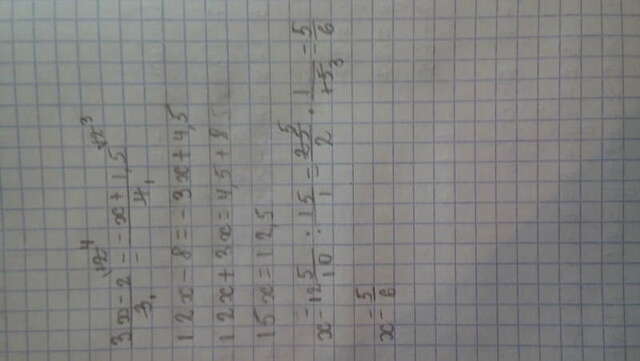 (3x-2)/3 \x4 = (-x+1,5)/4 \x3
12x-8=-3x+4,5
12x+3x=4,5+8
15x=12,5
x=12 5/10 : 15/1 = 25/2 · 1/15 3 = 5/6
x=5/6